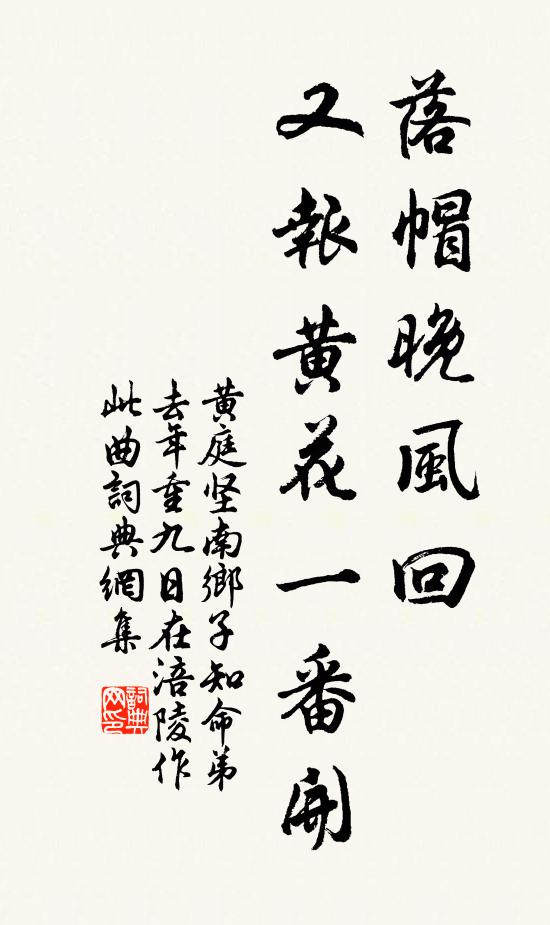 落帽晚風回
又報黃花一番開
黄庭坚南鄉子知命弟
去年重九日在涪陵作
此曲詞典網集
詞典网印